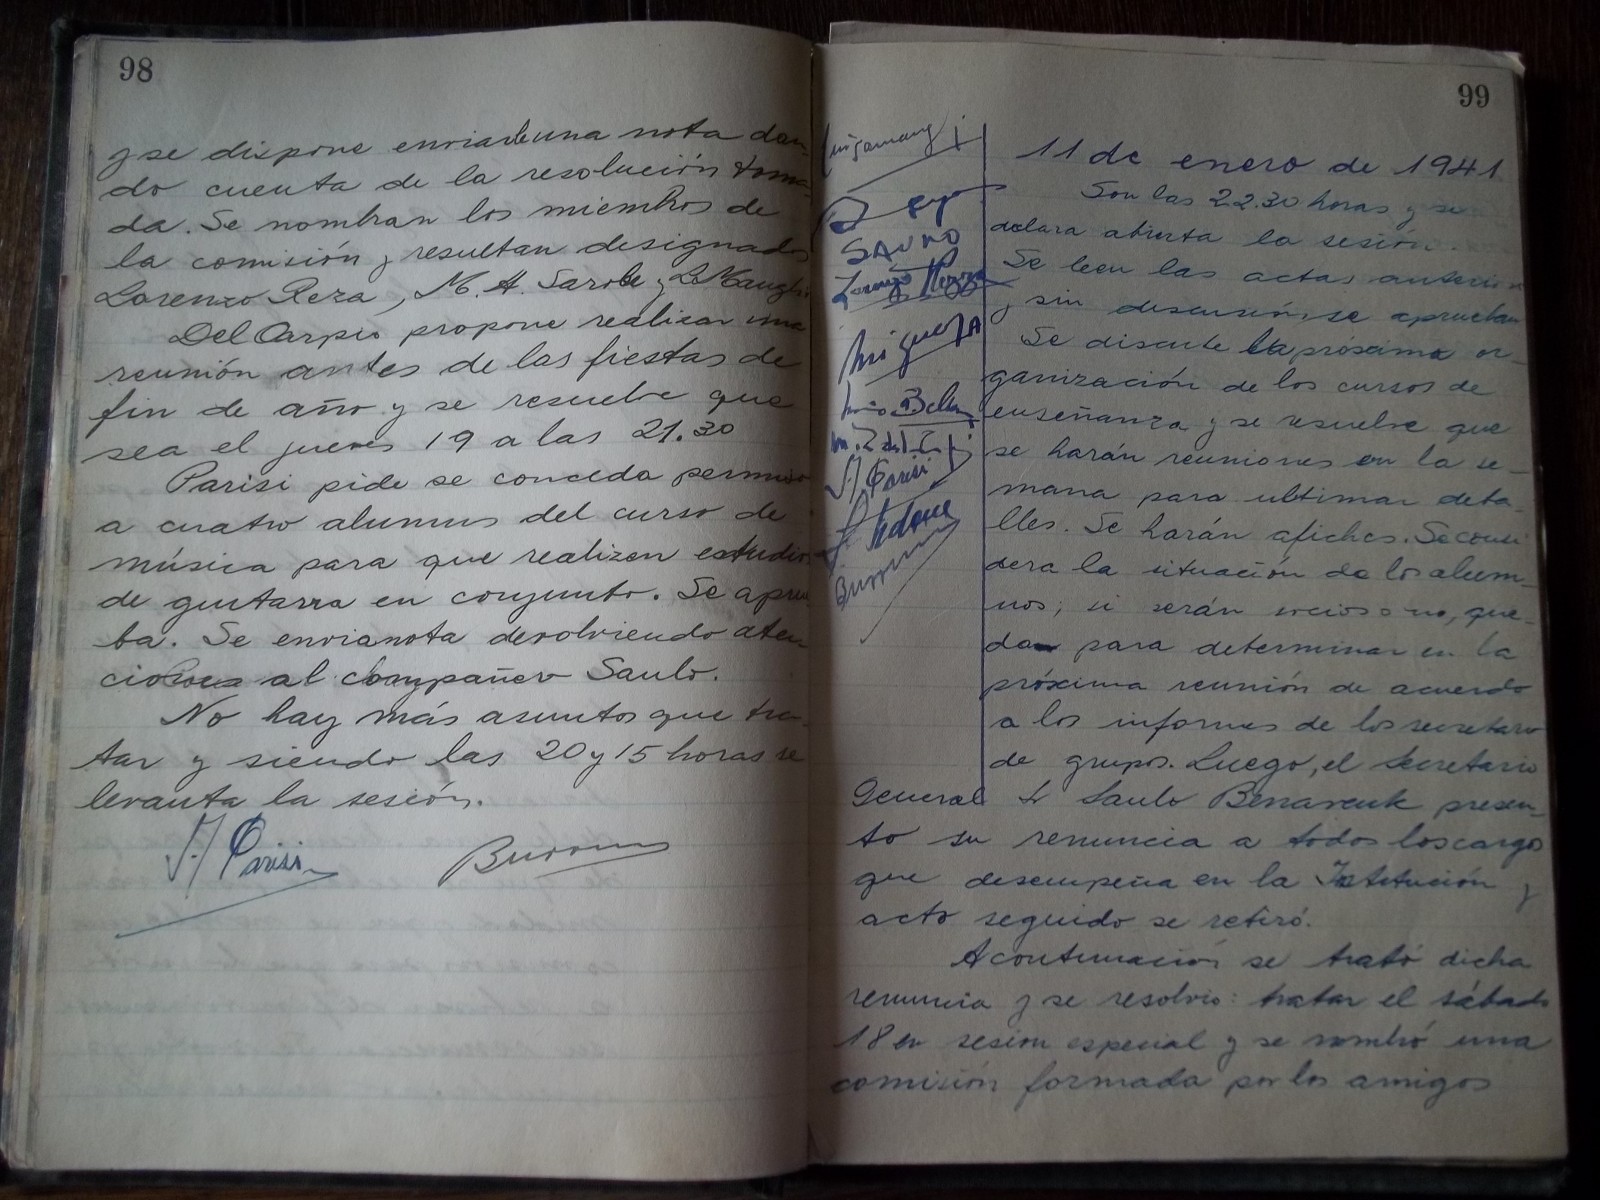 98
y se dispone enviar una nota dan-
do cuenta de la resolución toma-
da. Se nombran los miembros de
la comisión y resultan designados
Lorenzo Reza, M. A. Sarobe y L. Maugh
Del Carpio propone realizar una
reunión antes de las fiestas de
fin de año y se resuelve que
sea el jueves 19 a las 21.30
Parisi pide se conceda permiso
a cuatro alumnos del curso de
música para que realizen estudios
de guitarra en conjunto. Se aprue-
ba. Se envia nota devolviendo aten-
ciones al compañero Saulo.
No hay más asuntos que tra-
tar y siendo las 20 y 15 horas se
levanta la sesión.
Parisi
99
SAUNO
Lorenzo Rezza
Parisi
11 de enero de 1941
Son las 22.30 horas y se
declara abierta la sesión.
Se leen las actas anteriores
y sin discusión se aprueban
Se discute la próxima or-
ganización de los cursos de
enseñanza y se resuelve que
se harán reuniones en la se-
mana para ultimar deta-
lles. Se harán afiches. Se consi
dera la situación de los alum-
nos; si serán socios o no, que-
dan para determinar en la
próxima reunión de acuerdo
a los informes de los secretario
de grupos. Luego, el Secretario
General Sr Saulo Benavente presen-
to su renuncia a todos los cargos
que desempeña en la Institución y
acto seguido se retiró.
A continuación se trató dicha
renuncia y se resolvio: tratar el sábado
18 en sesion especial y se nombró una
comisión formada por los amigos